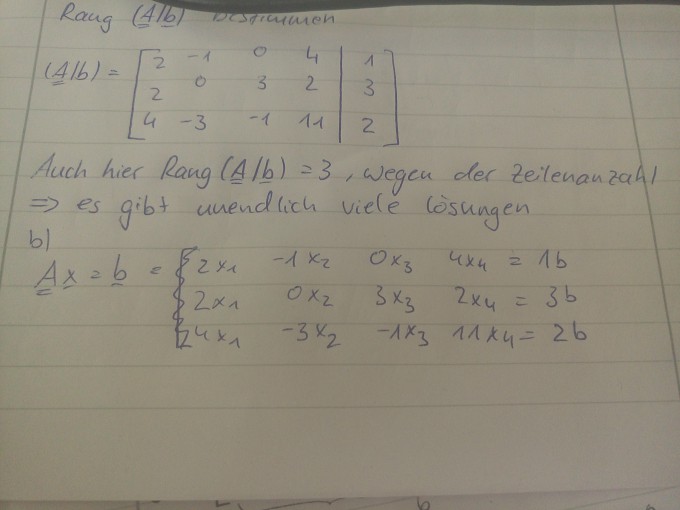 Rang (A|b) bestimmen
(A|b) = [ 2 -1 0 4 | 1 ]
2 0 3 2 | 3
4 -3 -1 11 | 2
Auch hier Rang (A|b) = 3, wegen der Zeilenanzahl
=> es gibt unendlich viele Lösungen
b)
A x = b = { 2x1 -1x2 0x3 4x4 = 1b
2x1 0x2 3x3 2x4 = 3b
4x1 -3x2 -1x3 11x4 = 2b